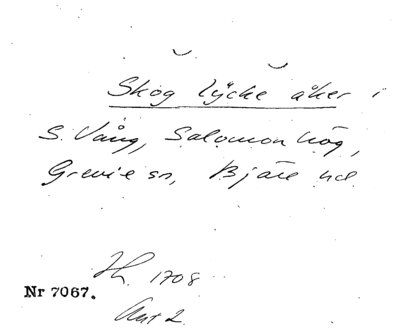 Skog lycke åker i
S. Vång, Salomonhög,
Grevie sn, Bjäre hd
1708
Nr 7067.